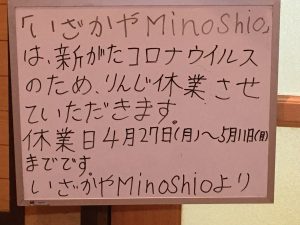 「いざかやMinoShio」
は、新がたコロナウイルス
のため、りんじ休業させ
ていただきます。
休業日4月27日(月)〜5月11日(月)
までです。
いざかやMinoShioより